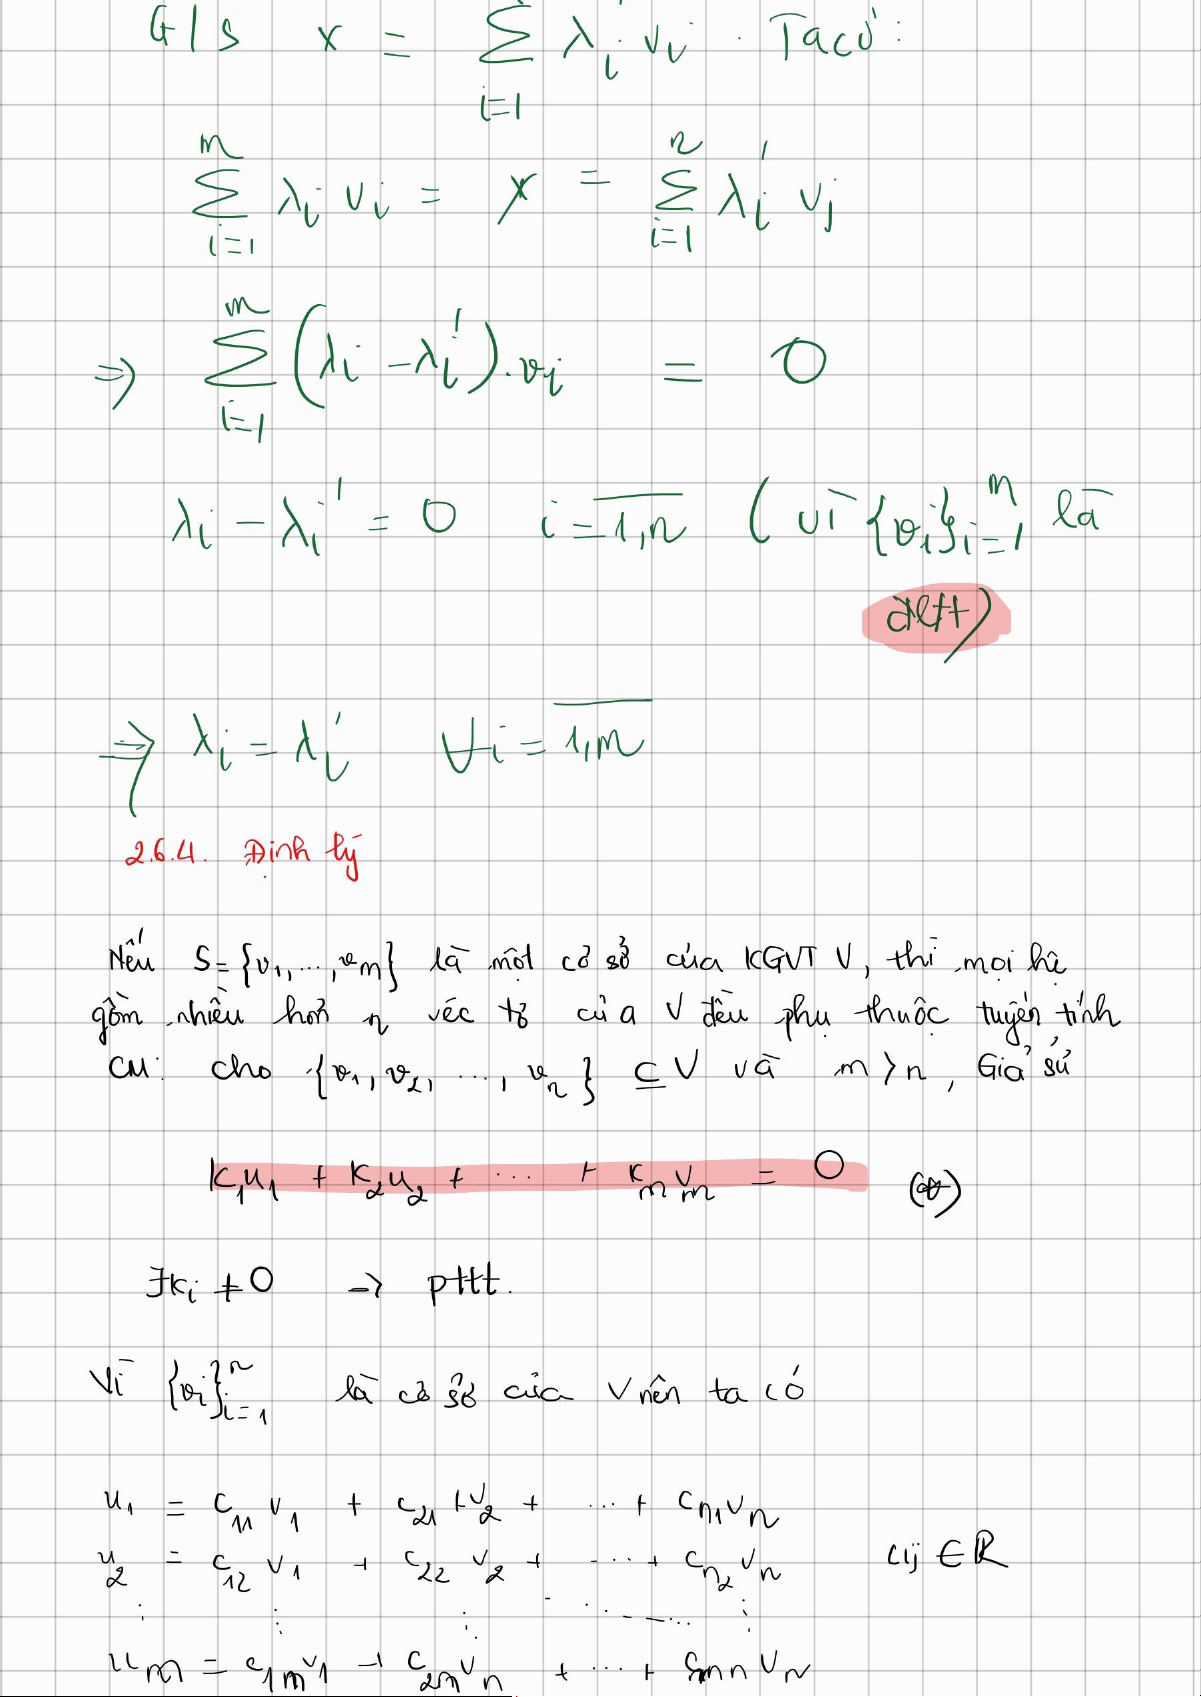 G/s x = ∑_{i=1} λ_i' v_i . Ta có :
∑_{i=1}^{n} λ_i v_i = x = ∑_{i=1}^{n} λ_i' v_i
⇒ ∑_{i=1}^{n} (λ_i − λ_i').v_i = 0
λ_i − λ_i' = 0 i = \overline{1,n} ( vì {v_i}_{i=1}^{n} là
đltt)
⇒ λ_i = λ_i' ∀i = \overline{1,n}
2.6.4. Định lý
Nếu S={v_1,...,v_n} là một cơ sở của KGVT V, thì mọi hệ
gồm nhiều hơn n véc tơ của V đều phụ thuộc tuyến tính
CM: cho {v_1, v_2, ..., v_n} ⊆ V và m > n, Giả sử
k_1u_1 + k_2u_2 + ... + k_mv_m = 0 (*)
∃k_i ≠ 0 → pttt.
Vì {v_i}_{i=1}^{n} là cơ sở của V nên ta có
u_1 = c_{11} v_1 + c_{21} + v_2 + ... + c_{n1} v_n
u_2 = c_{12} v_1 + c_{22} v_2 + ... + c_{n2} v_n c_{ij} ∈ ℝ
u_m = c_{1m} v_1 + c_{2m} v_n + ... + c_{mn} v_n